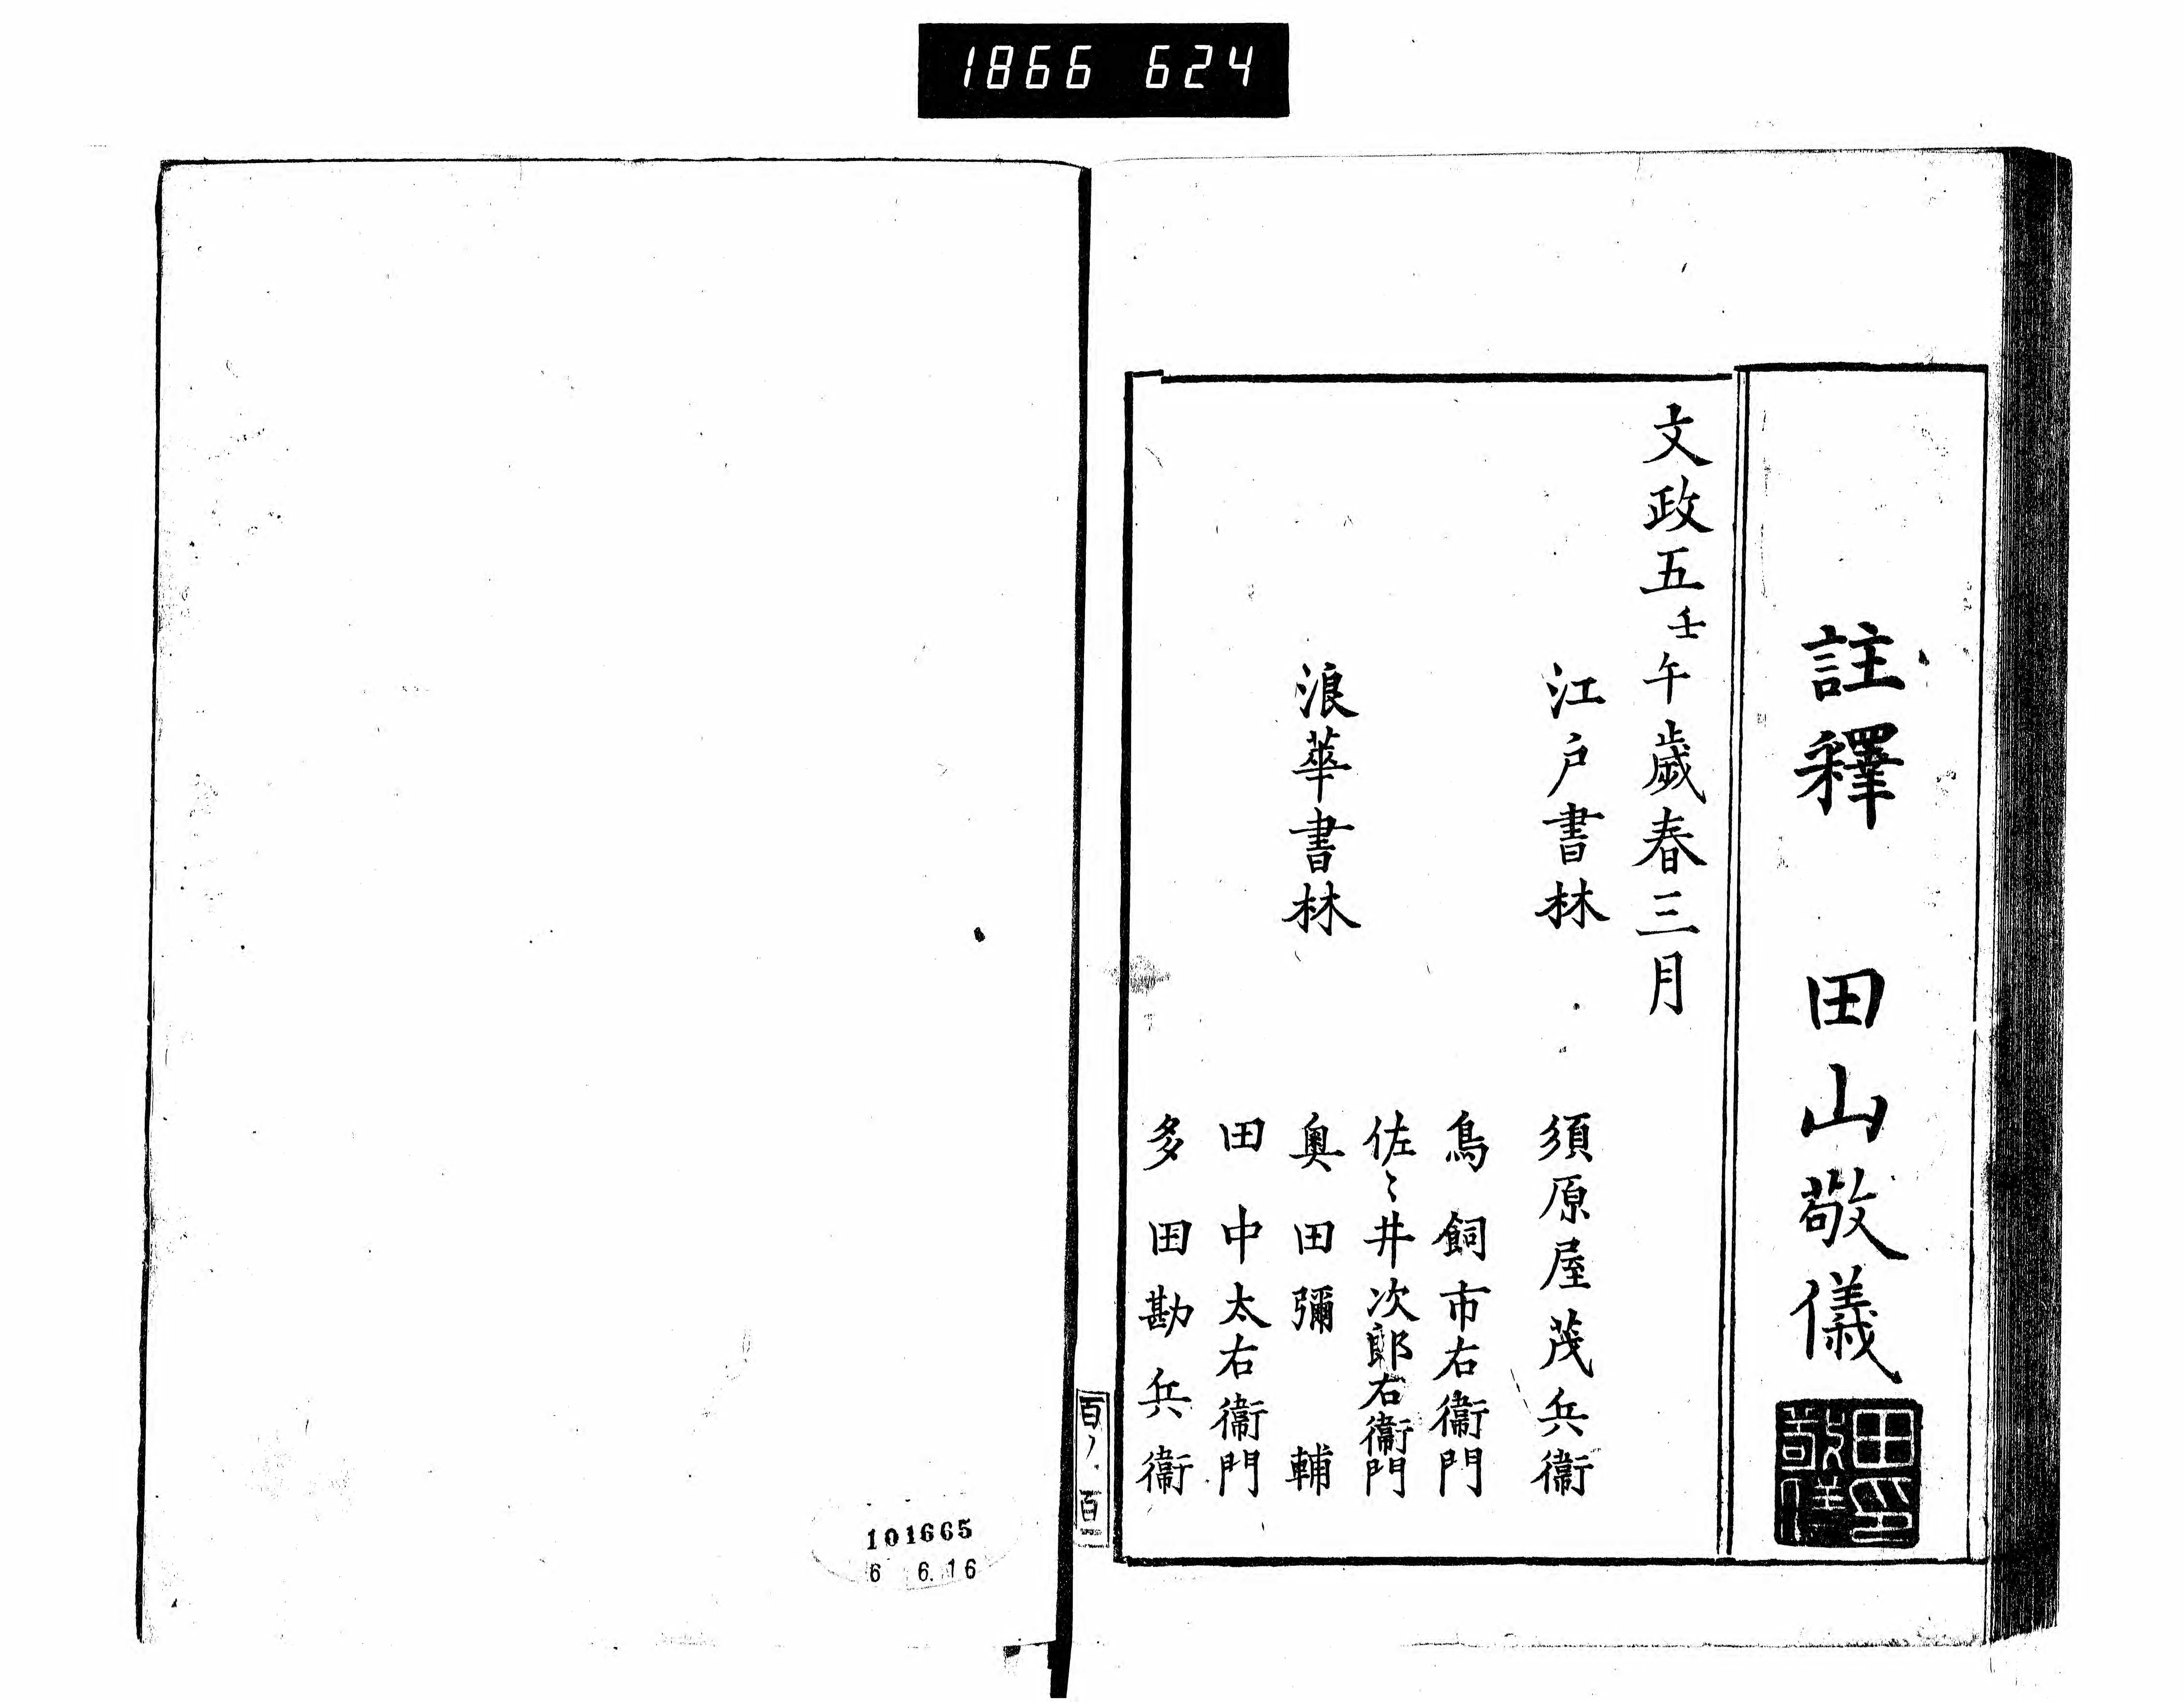 1866 624
註釋 田山敬儀
田印
敬儀
文政五壬午歲春三月
江戸書林 須原屋茂兵衞
鳥飼市右衞門
佐〻井次郎右衞門
浪華書林 奥田彌輔
田中太右衞門
多田勘兵衞
101665
6 6.16